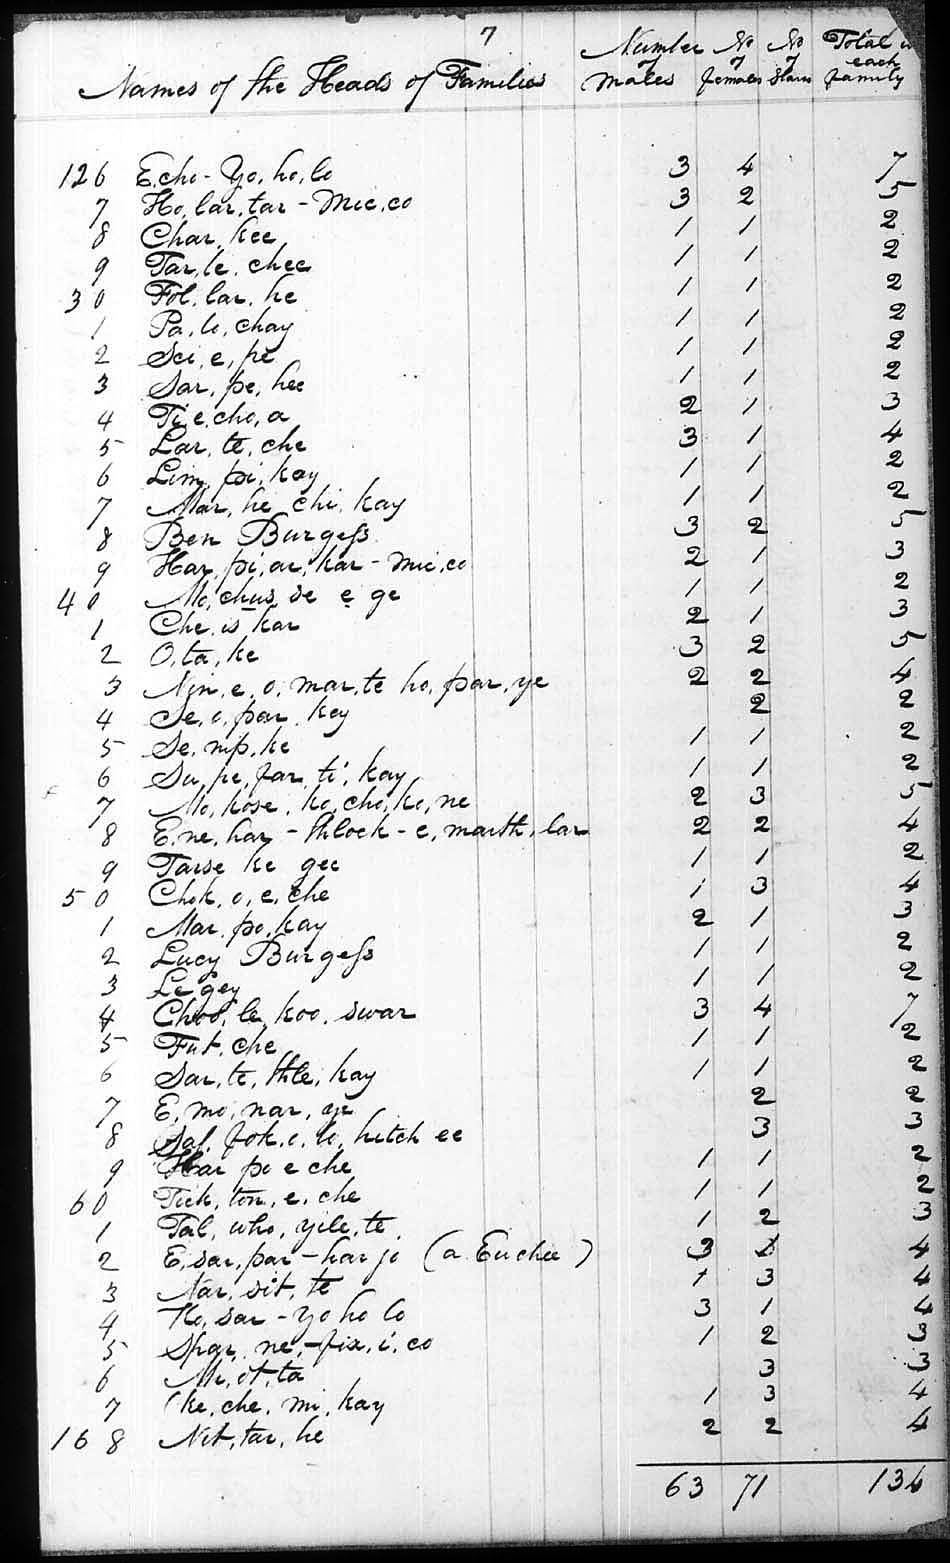 7
Names of the Heads of Families Number of males No of females No of Slaves Total in each family
126 E,cho - Yo, ho, lo 3 4 7
7 Ho, lar, tar - Mic, co 3 2 5
8 Char, kee 1 1 2
9 Tar, le, chee 1 1 2
30 Fol, lar, he 1 1 2
1 Pa, lo, chay 1 1 2
2 Sci, e, pe 1 1 2
3 Sar, pe, hee 1 1 2
4 Ti e, cho, a 2 1 3
5 Lar, te, che 3 1 4
6 Lim, pi, kay 1 1 2
7 Mar, he chi, kay 1 1 2
8 Ben Burgess 3 2 5
9 Har, pi, ar, kar - mic, co 2 1 3
40 Mo, chus se e ge 1 1 2
1 Che, is kar 2 1 3
2 O, ta, ke 3 2 5
3 Nin, e, o, mar, te ho, par, ye 2 2 4
4 Se, o, par, key 2 2
5 Se, nip, ke 1 1 2
6 Su, pe, far, ti, kay 1 1 2
7 Mo, kose, ko, cho, ko, ne 2 3 5
8 E, ne, har - thlock - e, marth, lar 2 2 4
9 Tarse ke gee 1 1 2
50 Chok, o, e, che 1 3 4
1 Mar, po, kay 2 1 3
2 Lucy Burgess 1 1 2
3 Le gey 1 1 2
4 Choo, le, koo, swar 3 4 7
5 Fut, che 1 1 2
6 Sar, te, thle, kay 1 1 2
7 E, mo, nar, ye 2 2
8 Saf, fok, e, lo, hitch ee 3 3
9 Har po e che 1 1 2
60 Tick, ton, e, che 1 1 2
1 Tal, who, yile, te 1 2 3
2 E, sar, par - har jo (a Euchee) 3 1 4
3 Nar, sit, te 1 3 4
4 Ko, sar - Yo ho lo 3 1 4
5 Spar, ne, - fix, i, co 1 2 3
6 Mi, ot, ta 3 3
7 Ke, che, mi, kay 1 3 4
168 Nit, tar, he 2 2 4
63 71 134